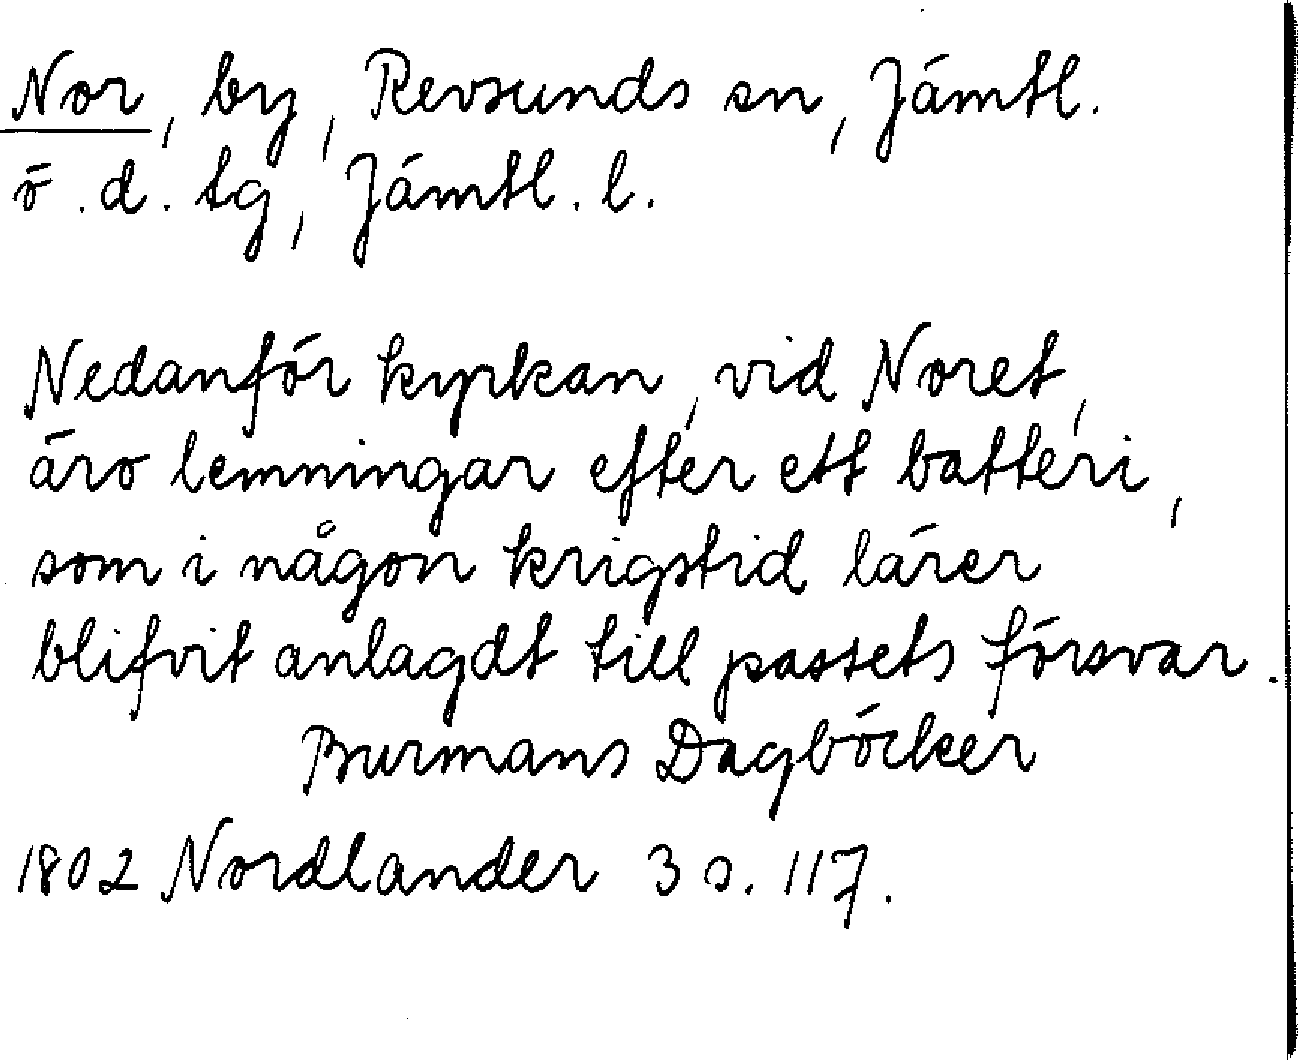 Nor, by, Revsunds sn, Jämtl.
ö. d. tg, Jämtl. l.
Nedanför kyrkan, vid Noret,
äro lemningar efter ett batteri,
som i någon krigstid lärer
blifvit anlagdt till passets försvar.
Burmans Dagböcker
1802 Nordlander 3 s. 117.